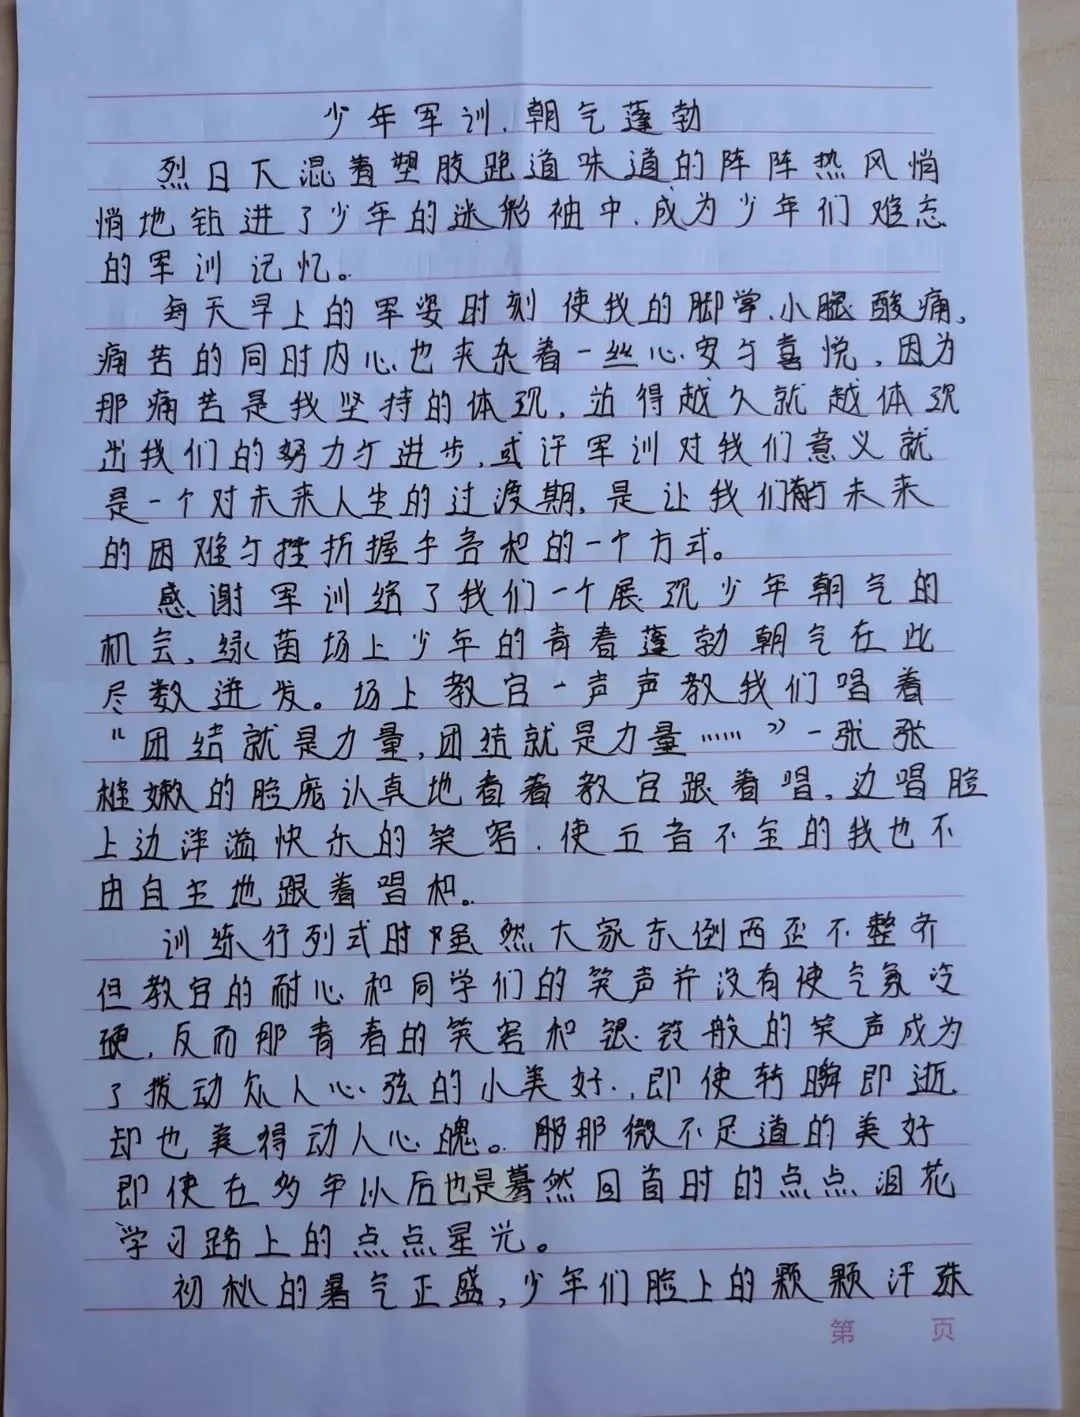 少年军训、朝气蓬勃
烈日下混着塑胶跑道味道的阵阵热风悄
悄地钻进了少年的迷彩袖中,成为少年们难忘
的军训记忆。
每天早上的军姿时刻使我的脚掌、小腿酸痛,
痛苦的同时内心也夹杂着一丝心安与喜悦,因为
那痛苦是我坚持的体现,站得越久就越体现
出我们的努力与进步,或许军训对我们意义就
是一个对未来人生的过渡期,是让我们与未来
的困难与挫折握手言和的一个方式。
感谢军训给了我们一个展现少年朝气的
机会,绿茵场上少年的青春蓬勃朝气在此
尽数迸发。场上教官一声声教我们唱着
“团结就是力量,团结就是力量……”一张张
稚嫩的脸庞认真地看着教官跟着唱,边唱脸
上边洋溢快乐的笑容,使五音不全的我也不
由自主地跟着唱和。
训练行列式时虽然大家东倒西歪不整齐
但教官的耐心和同学们的笑声并没有使气氛冷
硬,反而那青春的笑容和银铃般的笑声成为
了拨动众人心弦的小美好,即使转瞬即逝
却也美得动人心魄。那那微不足道的美好
即使在多年以后也是蓦然回首时的点点泪花
学习路上的点点星光。
初秋的暑气正盛,少年们脸上的颗颗汗珠
第 页